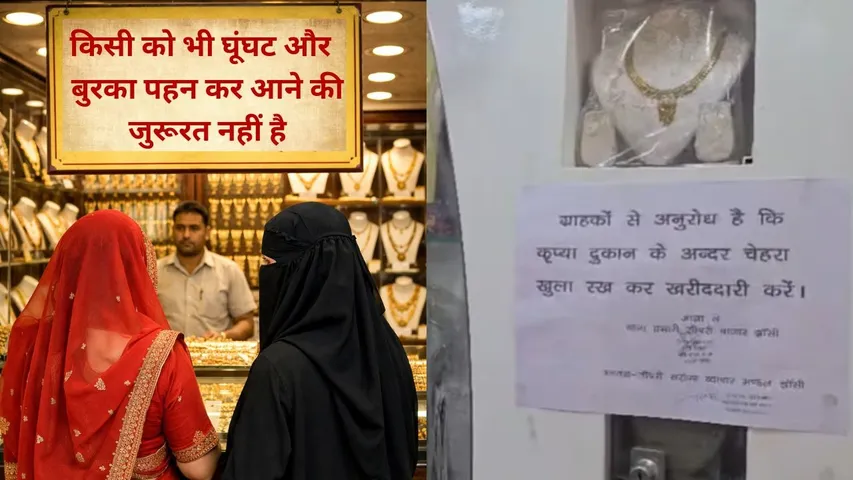 किसी को भी घूंघट और
बुरका पहन कर आने की
जुरूरत नहीं है
ग्राहकों से अनुरोध है कि
कृप्या दुकान के अन्दर चेहरा
खुला रख कर खरीददारी करें।
आज्ञा से
थाना प्रभारी सीपरी बाजार झाँसी
सीपरी सर्राफा व्यापार मण्डल झाँसी